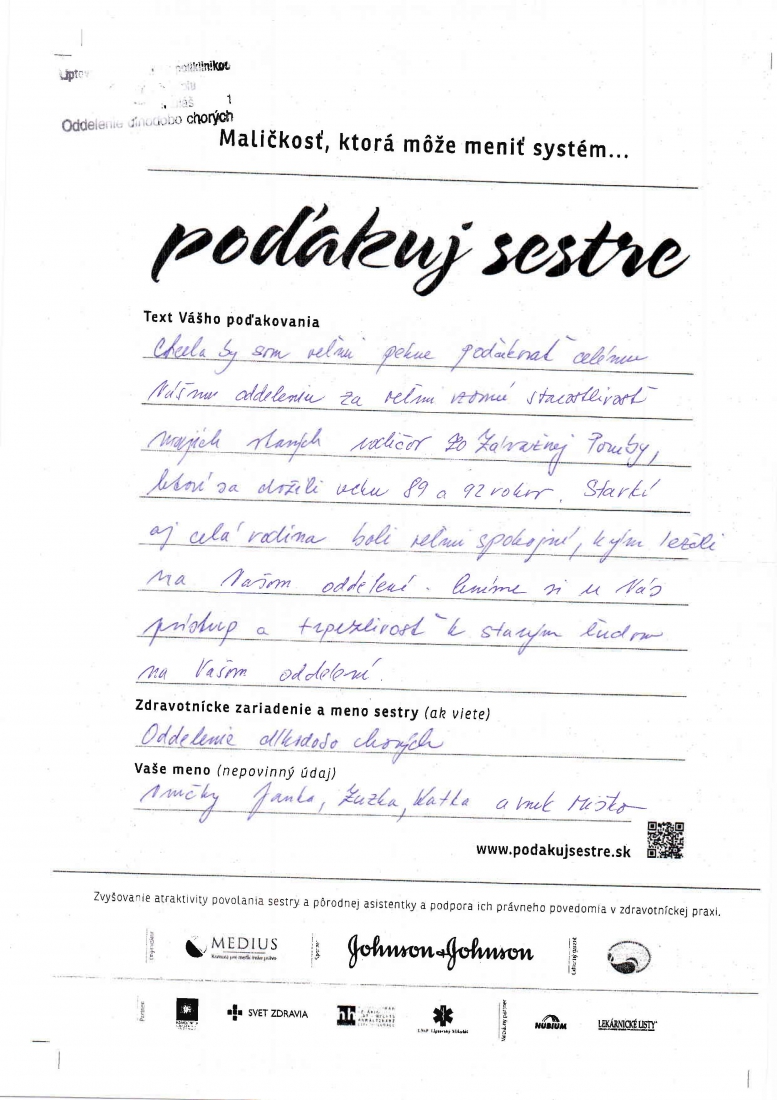 Liptov poliklinikou
1
Oddelenie dlhodobo chorých
Maličkosť, ktorá môže meniť systém...
poďakuj sestre
Text Vášho poďakovania
Chcela by som veľmi pekne poďakovať celému
Vášmu oddeleniu za veľmi vzornú starostlivosť
mojich starých rodičov zo Závažnej Poruby,
ktorí sa dožili veku 89 a 92 rokov. Starkí
aj celá rodina boli veľmi spokojní, kým ležali
na Vašom oddelení. Ceníme si u Vás
prístup a trpezlivosť k starým ľuďom
na Vašom oddelení.
Zdravotnícke zariadenie a meno sestry (ak viete)
Oddelenie dlhodobo chorých
Vaše meno (nepovinný údaj)
Vnučky Janka, Zuzka, Katka a vnuk Miško
www.podakujsestre.sk
Zvyšovanie atraktivity povolania sestry a pôrodnej asistentky a podpora ich právneho povedomia v zdravotníckej praxi.
MEDIUS
Johnson & Johnson
SVET ZDRAVIA
hh
NUBIUM
LEKÁRNICKÉ LISTY